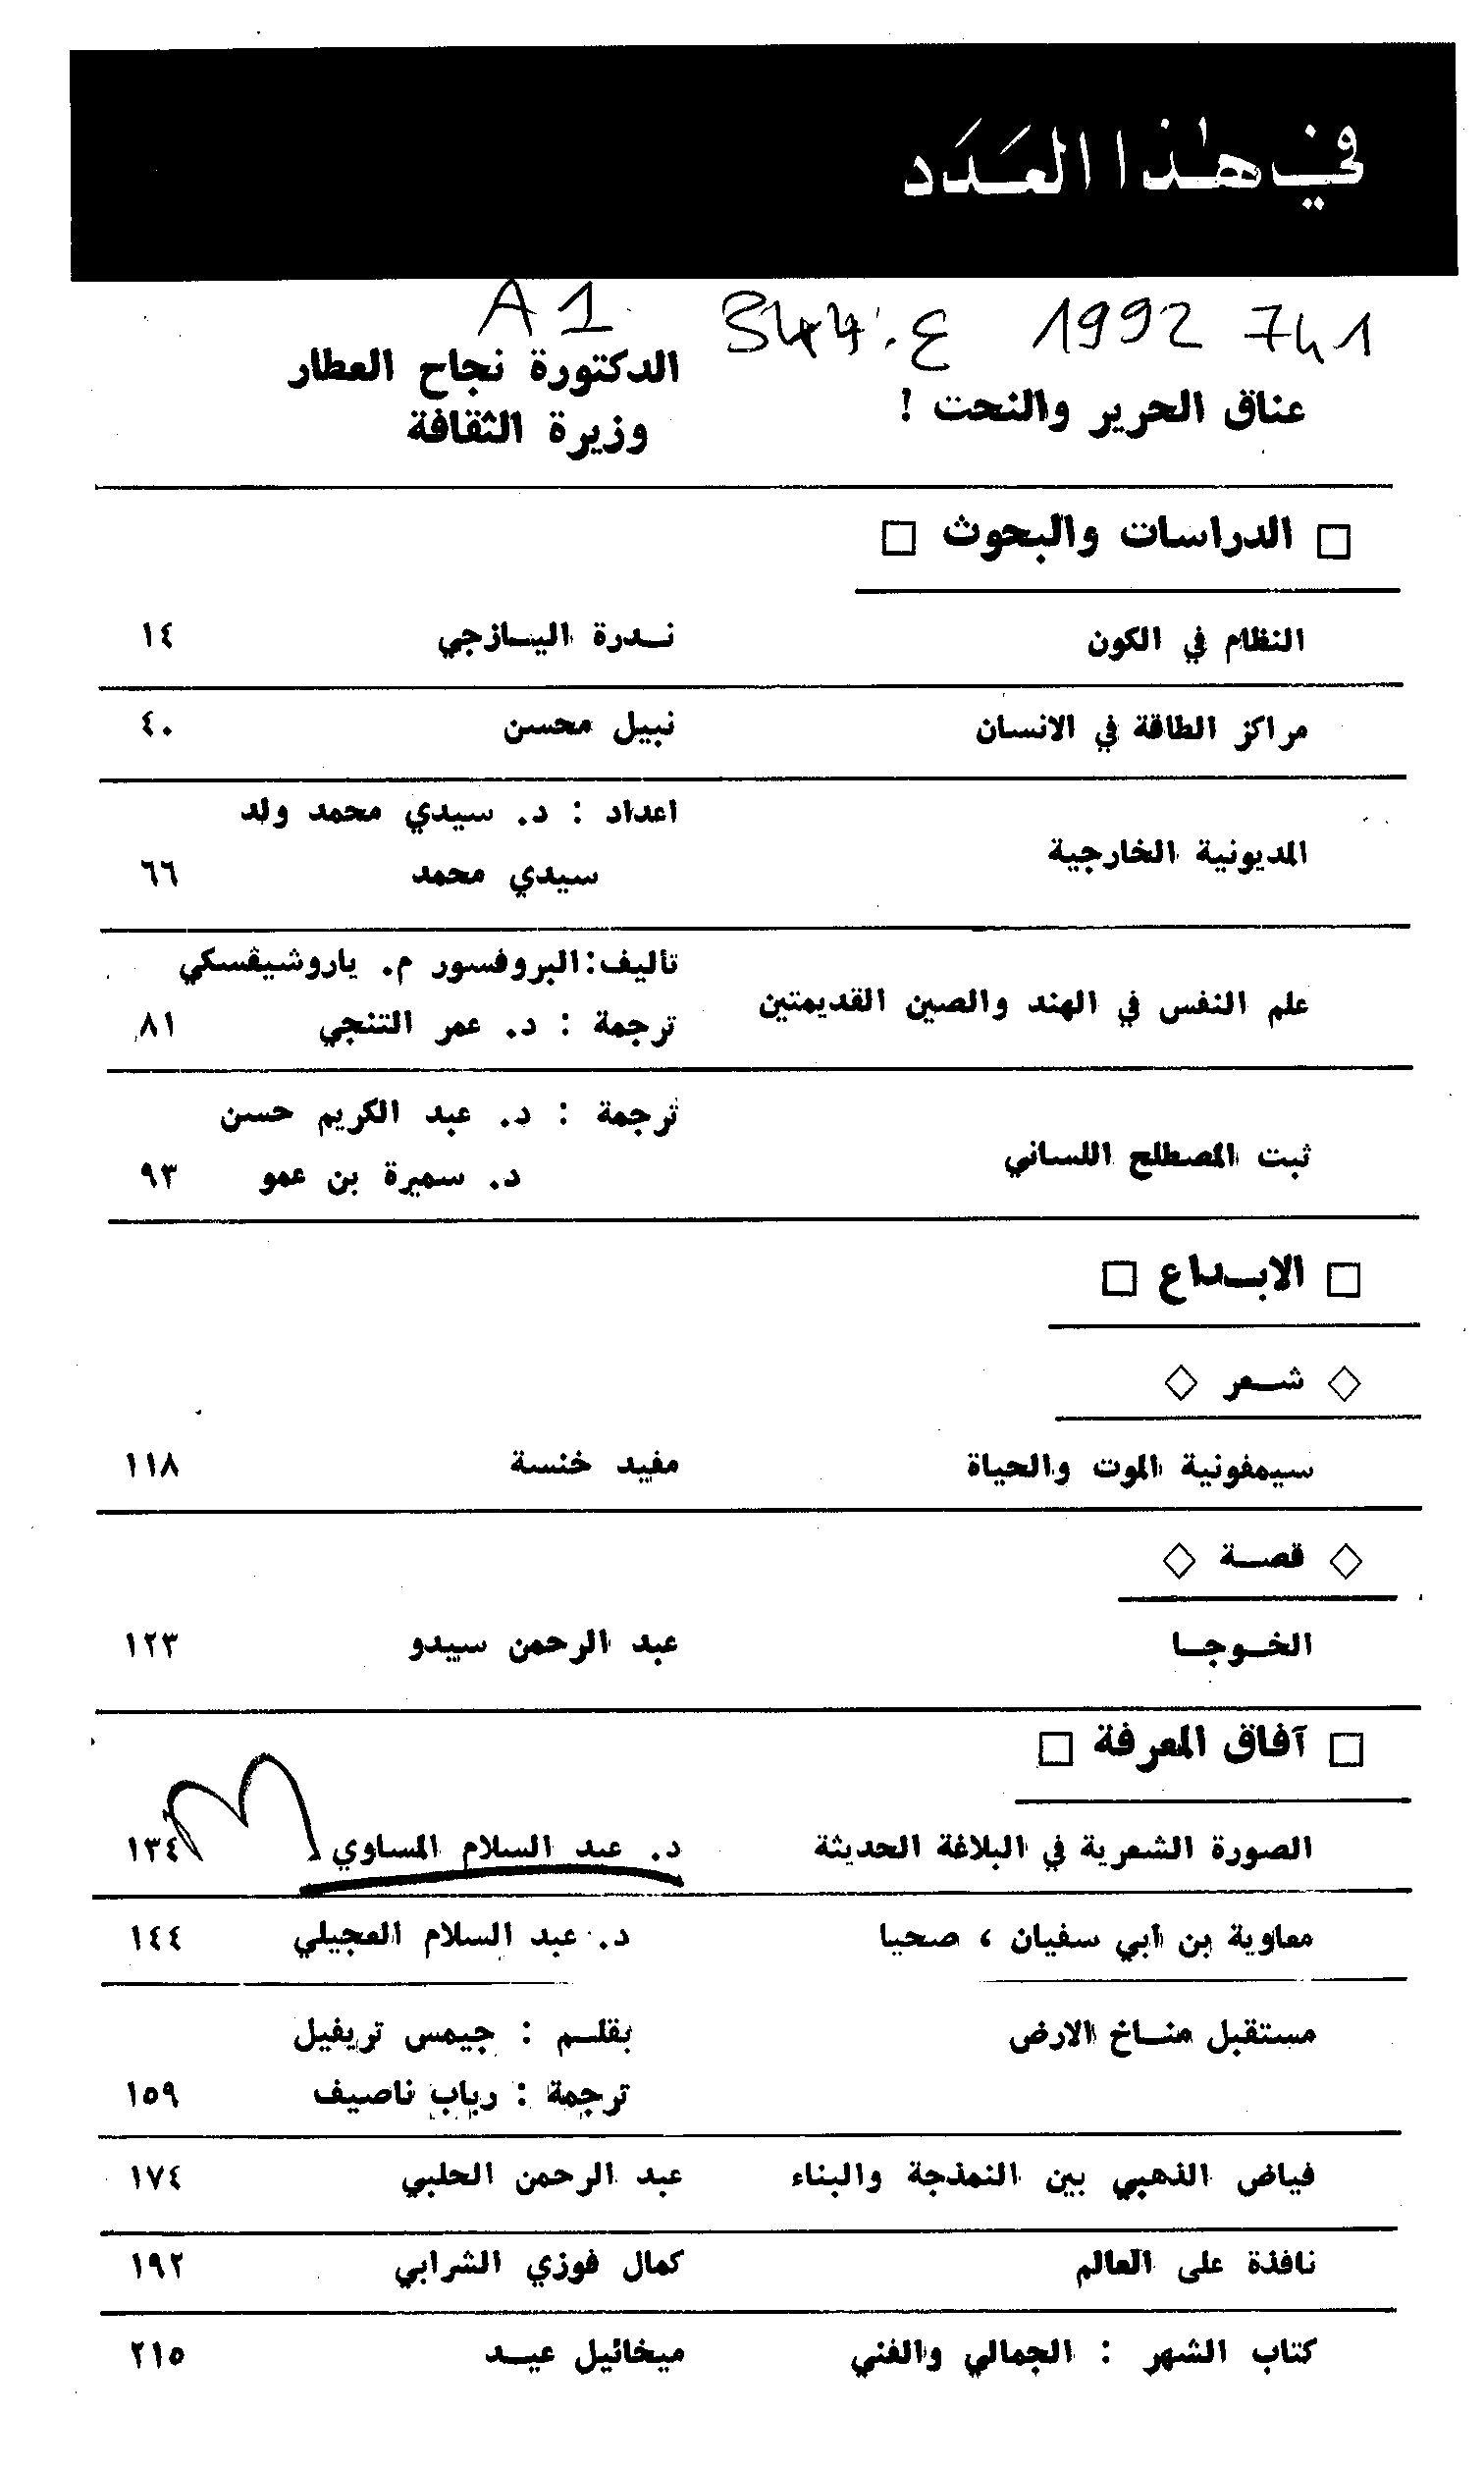 في هذا العدد
A1 344.ع 1992 7h1
عناق الحرير والنحت ! الدكتورة نجاح العطار
وزيرة الثقافة
□ الدراسات والبحوث □
النظام في الكون نــدرة اليــازجي ١٤
مراكز الطاقة في الانسان نبيل محسن ٤٠
المديونية الخارجية اعداد : د. سيدي محمد ولد
سيدي محمد ٦٦
علم النفس في الهند والصين القديمتين تأليف: البروفسور م. ياروشيڤسكي
ترجمة : د. عمر التنجي ٨١
ثبت المصطلح اللساني ترجمة : د. عبد الكريم حسن
د. سميرة بن عمو ٩٣
□ الابــداع □
◇ شــعر ◇
سيمفونية الموت والحياة مفيد خنسة ١١٨
◇ قصــة ◇
الخــوجــا عبد الرحمن سيدو ١٢٣
□ آفاق المعرفة □
الصورة الشعرية في البلاغة الحديثة د. عبد السلام المساوي ١٣٤
معاوية بن أبي سفيان ، صحيا د. عبد السلام العجيلي ١٤٤
مستقبل منــاخ الارض بقلــم : جيمس تريفيل
ترجمة : رباب ناصيف ١٥٩
فياض الذهبي بين النمذجة والبناء عبد الرحمن الحلبي ١٧٤
نافذة على العالم كمال فوزي الشرابي ١٩٢
كتاب الشهر : الجمالي والفني ميخائيل عيــد ٢١٥